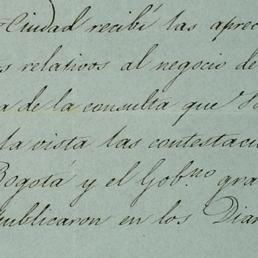 Ciudad recibí las aprec
s relativos al negocio de
a de la consulta que
la vista las contestaci
Bogotá y el Gob.no gra
publicaron en los Diar